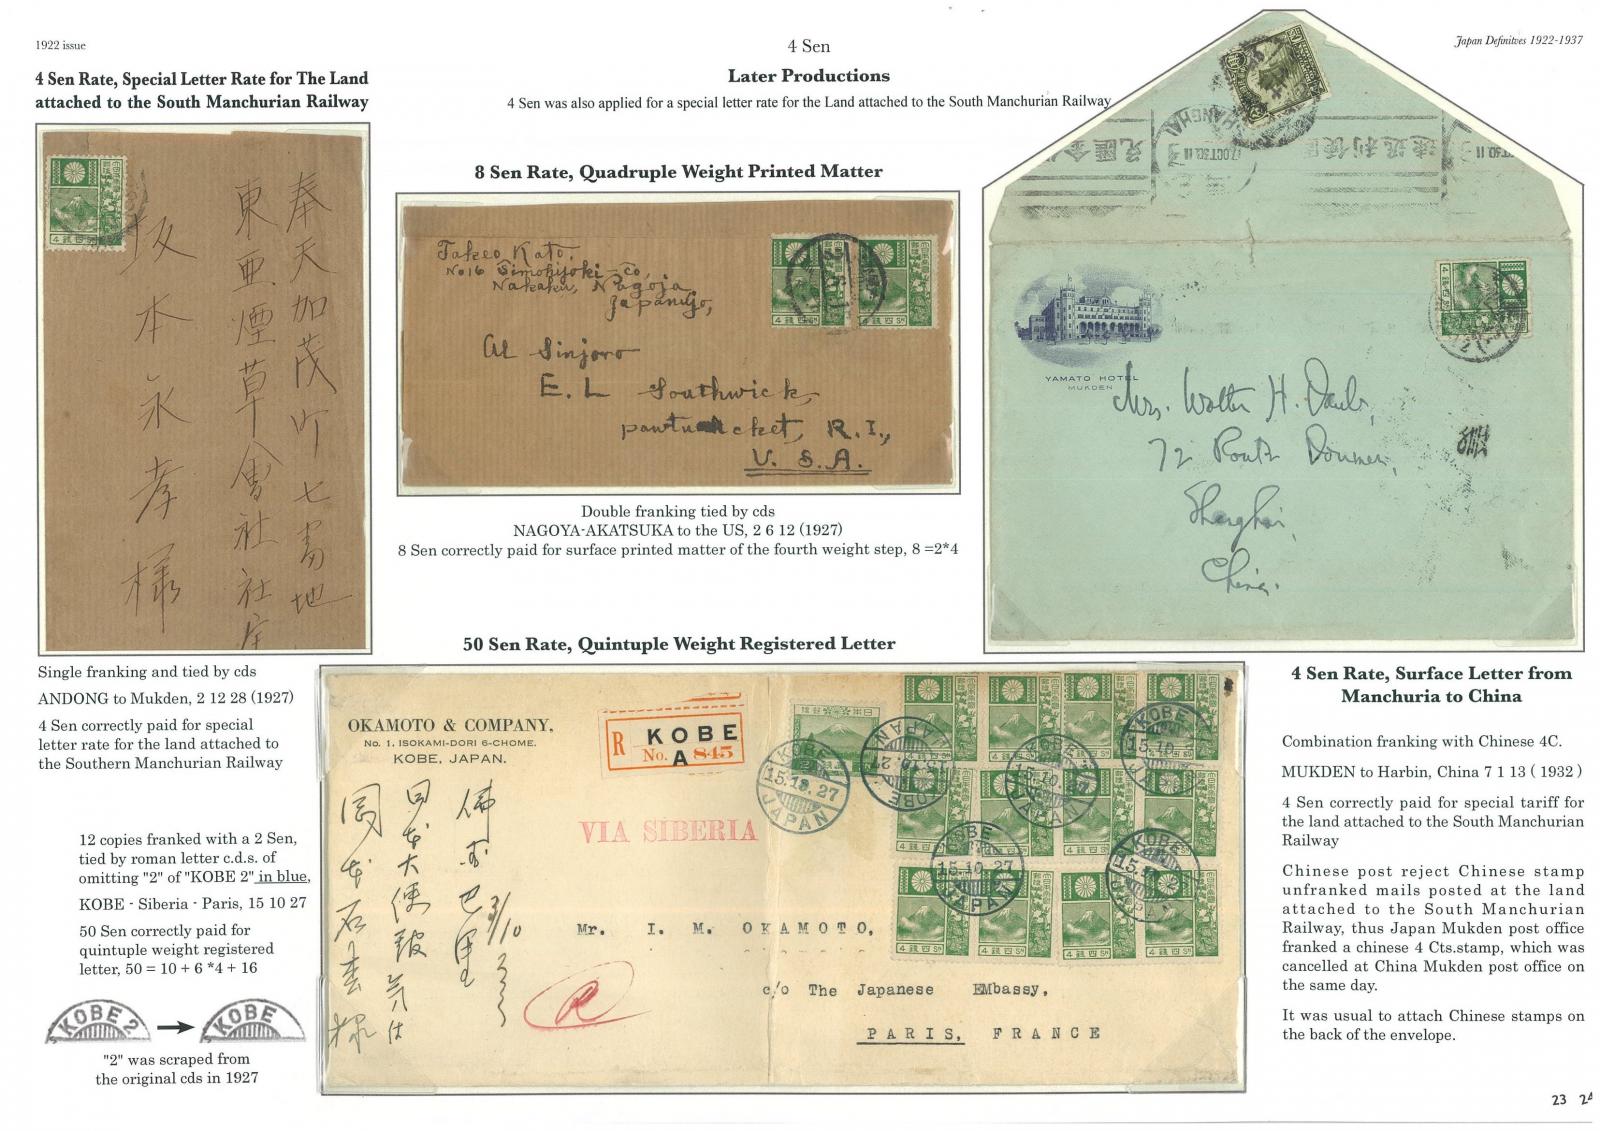 1922 issue
4 Sen
Japan Definitves 1922-1937
4 Sen Rate, Special Letter Rate for The Land
attached to the South Manchurian Railway
Later Productions
4 Sen was also applied for a special letter rate for the Land attached to the South Manchurian Railway
奉天加茂町七番地
東亜煙草會社社宅
坂本永孝様
Single franking and tied by cds
ANDONG to Mukden, 2 12 28 (1927)
4 Sen correctly paid for special
letter rate for the land attached to
the Southern Manchurian Railway
8 Sen Rate, Quadruple Weight Printed Matter
Takeo Kato.
No 16 Simohijoki-co,
Nakaku, Nagoja
Japanujo,
Al Sinjoro
E. L Southwick,
pawtucket, R.I.,
U. S. A.
Double franking tied by cds
NAGOYA-AKATSUKA to the US, 2 6 12 (1927)
8 Sen correctly paid for surface printed matter of the fourth weight step, 8 =2*4
SHANGHAI
7.OCT.30.11
YAMATO HOTEL
MUKDEN
Mrs. Walter H. Daub,
72 Route Doumer,
Shanghai,
China.
4 Sen Rate, Surface Letter from
Manchuria to China
Combination franking with Chinese 4C.
MUKDEN to Harbin, China 7 1 13 ( 1932 )
4 Sen correctly paid for special tariff for
the land attached to the South Manchurian
Railway
Chinese post reject Chinese stamp
unfranked mails posted at the land
attached to the South Manchurian
Railway, thus Japan Mukden post office
franked a chinese 4 Cts.stamp, which was
cancelled at China Mukden post office on
the same day.
It was usual to attach Chinese stamps on
the back of the envelope.
50 Sen Rate, Quintuple Weight Registered Letter
OKAMOTO & COMPANY,
No. 1, ISOKAMI-DORI 6-CHOME.
KOBE, JAPAN.
R KOBE
No. A 845
VIA SIBERIA
KOBE
15.10.27
JAPAN
佛國巴里
日本大使館気付
岡本石喜様
R
Mr. I. M. OKAMOTO,
c/o The Japanese EMbassy,
PARIS, FRANCE
12 copies franked with a 2 Sen,
tied by roman letter c.d.s. of
omitting "2" of "KOBE 2" in blue,
KOBE - Siberia - Paris, 15 10 27
50 Sen correctly paid for
quintuple weight registered
letter, 50 = 10 + 6 *4 + 16
KOBE 2
KOBE
"2" was scraped from
the original cds in 1927
23 24